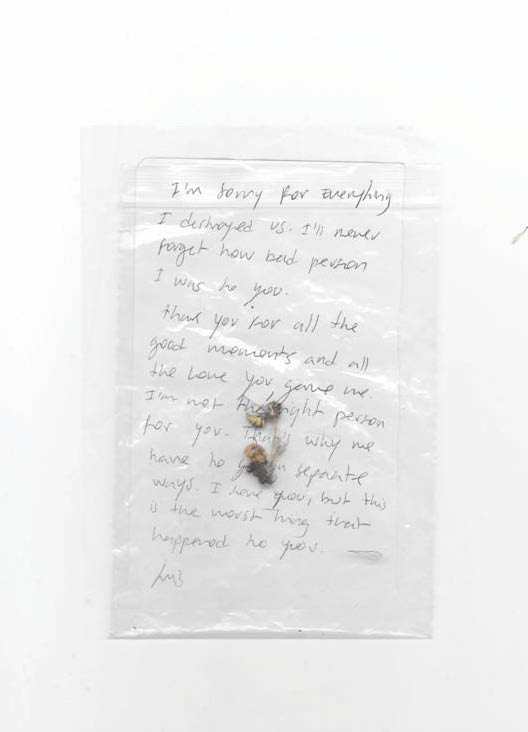 I'm sorry for Everything
I destroyed us. I'll never
forget how bad person
I was to you.
Thank you for all the
good moments and all
the love you gave me.
I'm not the right person
for you. That's why we
have to in separate
ways. I love you, but this
is the worst thing that
happened to you.